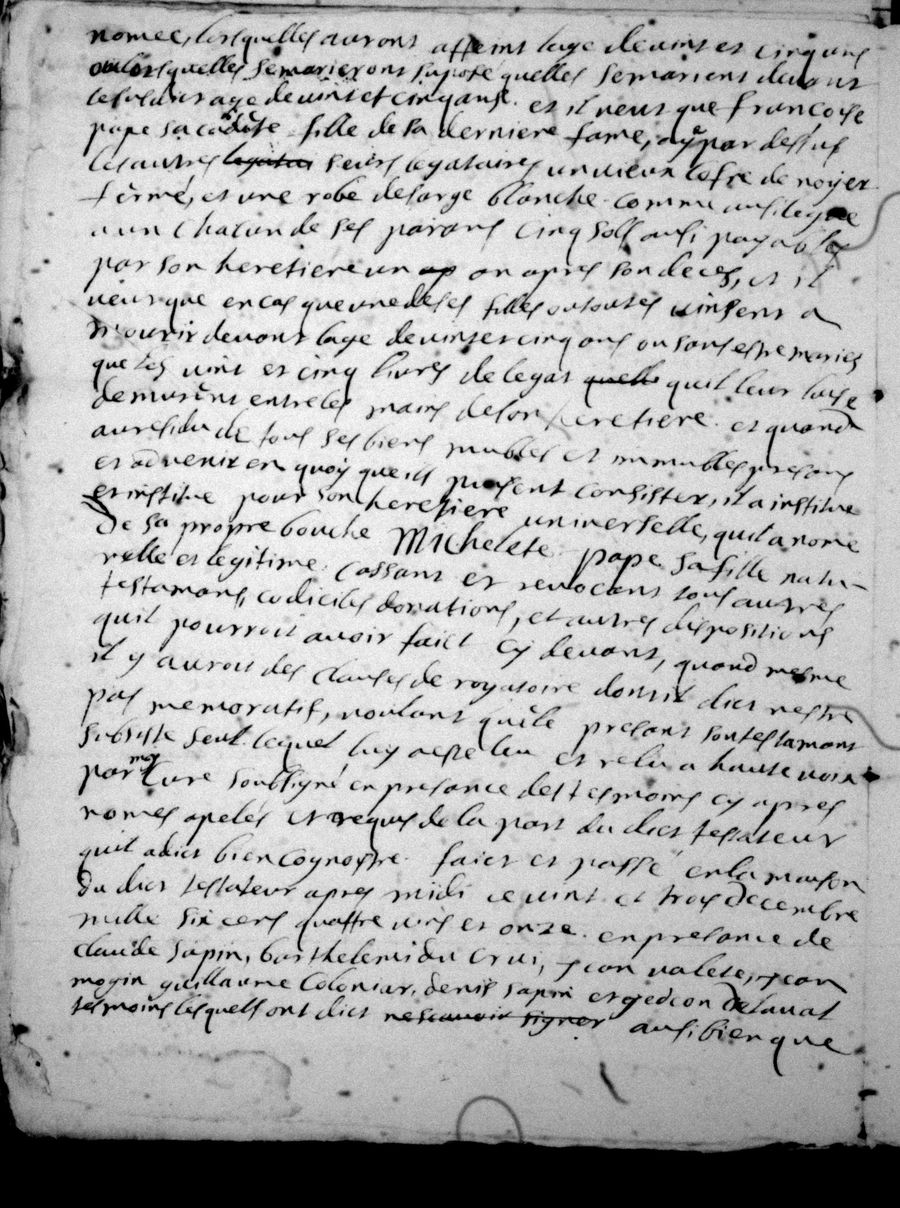 nomee, lorsquelles auront atteint lage devint et cinq ans
ou lorsquelles semarieront suposé quelles semarient devant
led. age devint et cinq ans. et il veut que francoise
pape sa cadete fille de sa derniere fame, aÿe par dessus
les autres legata seurs legataires un vieux cofre de noyer
fermé, et une robe desarge blanche. comme ausi legue
a un chacun de ses parans cinq solz ausi payables
par son heretiere un ap an apres son deces, et il
veut que en cas que une de ses filles ou toutes vinsent a
mourir devant lage devint et cinq ans ou sans estre mariees
que les vint et cinq livres de legat quelle quil leur laise
demurent entre les mains de son heretiere. et quand
au residu de tous ses biens mubles et immubles presans
et advenir en quoy que ils puisent consister, il a institue
et institue pour son heretiere universelle, quil a nome
De sa propre bouche Michelete pape sa fille natu-
relle et legitime. cassant et revocant tous autres
testamans, codiciles donations, et autres dispositions
quil pourroit avoir faict cy devant, quand mesme
il y auroit des clauses deroyatoire dont il dict nestre
pas memoratif, voulant quele presant son testamant
subsiste seul. lequel luy a este leu et relu a haute voix
par moy Cure soubsigné en presance des tesmoins cy apres
nomes apelés et requis de la part du dict testateur
quil a dict bien cognostre. faict et passé en la maison
du dict testateur apres midi ce vint et trois Decembre
mille six cens quattre vins et onze. en presance de
claude sapin, barthelemi du Crui, jean valete, jean
mogin guillaume Coloniar, denis sapin et gedeon Delaval
tesmoins lesquels ont dict ne scauvoir signer ausi bien que